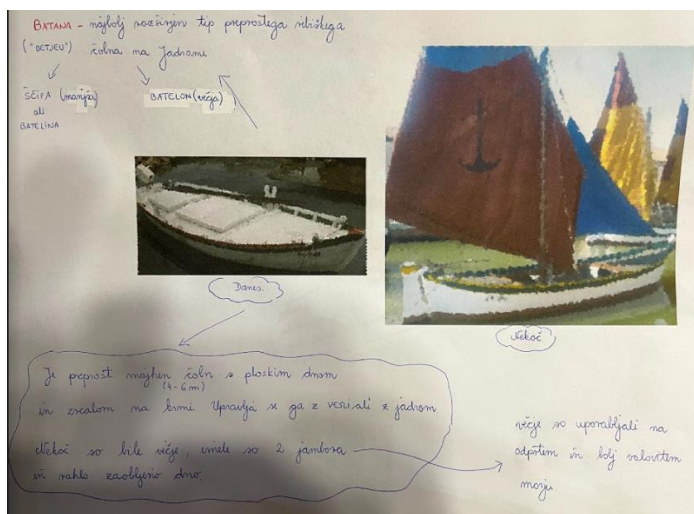 BATANA - najbolj razširjen tip preprostega ribiškega
("BETJEU") čolna na Jadranu
ŠČIFA (manjša)
ali
BATELINA
BATELON (večja)
Danes.
Nekoč
Je preprost majhen čoln s ploskim dnom
(4-6 m)
in zrcalom na krmi. Upravlja se ga z vesli ali z jadrom
Nekoč so bile večje, imele so 2 jambora
in rahlo zaobljeno dno.
večje so uporabljali na
odprtem in bolj valovitem
morju.